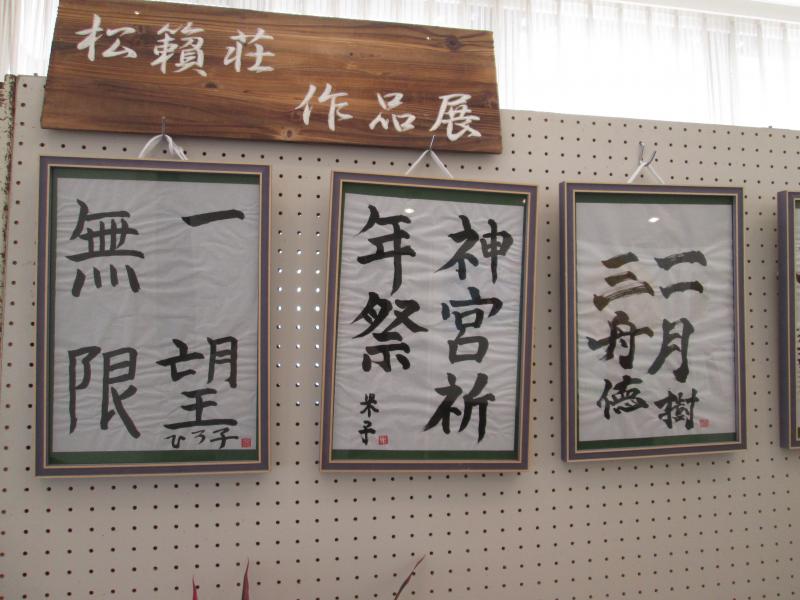 松籟荘
作品展
一望
無限
ひろ子
神宮祈
年祭
米子
二月樹
三舟徳